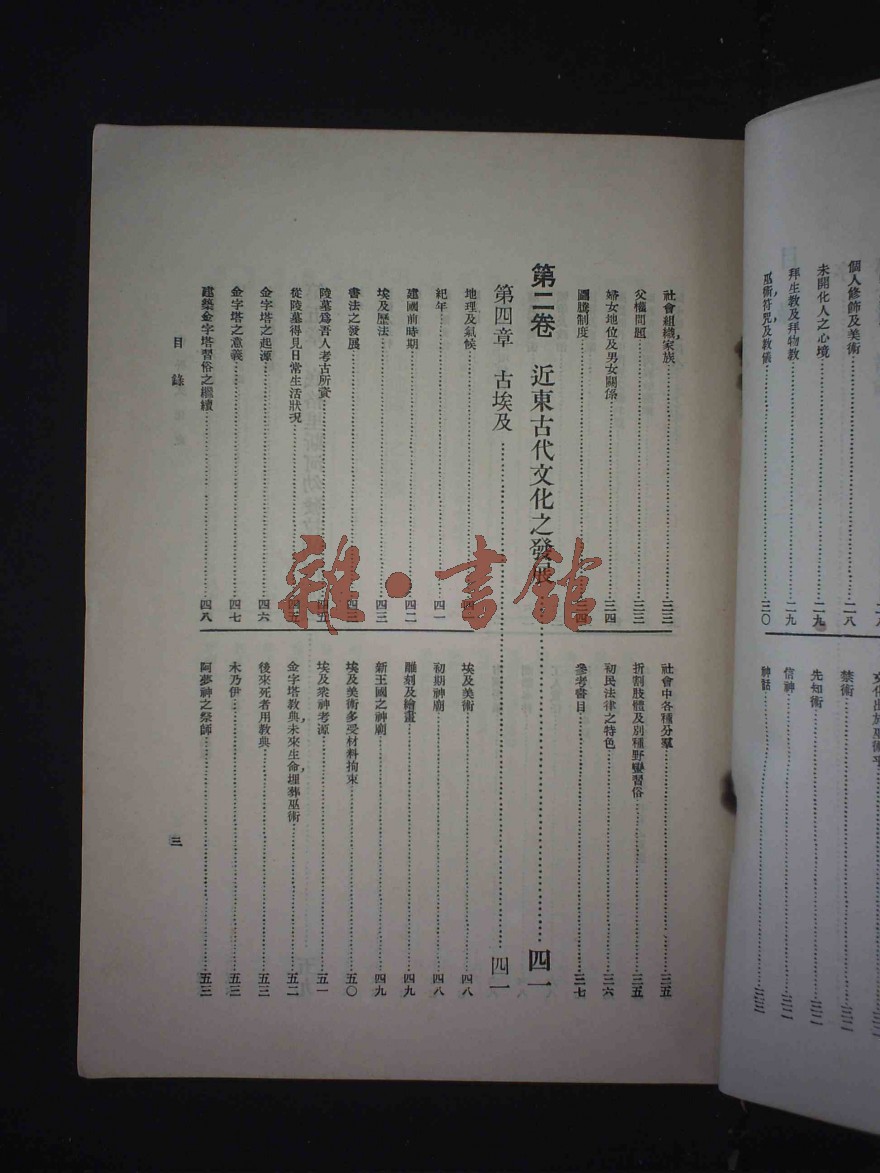 個人修飾及美術……二八
未開化人之心境……二九
拜生教及拜物教……二九
巫術，符咒，及教儀……三〇
禁術……三二
先知術……三二
信神……三二
神話……三三
社會組織，家族……三三
父權問題……三三
婦女地位及男女關係……三四
圖騰制度……三四
社會中各種分羣……三五
折割肢體及別種野蠻習俗……三五
初民法律之特色……三六
參考書目……三七
第二卷 近東古代文化之發展……四一
第四章 古埃及……四一
地理及氣候……四一
紀年……四一
建國前時期……四二
埃及歷法……四三
書法之發展……四三
陵墓爲吾人考古所資……四五
從陵墓得見日常生活狀況……四五
金字塔之起源……四六
金字塔之意義……四七
建築金字塔習俗之繼續……四八
埃及美術……四八
初期神廟……四八
雕刻及繪畫……四九
新王國之神廟……四九
埃及美術多受材料拘束……五〇
埃及衆神考源……五一
金字塔教典，未來生命，埋葬巫術……五二
後來死者用教典……五三
木乃伊……五三
阿夢神之祭師……五三
目錄
三
雜·書館